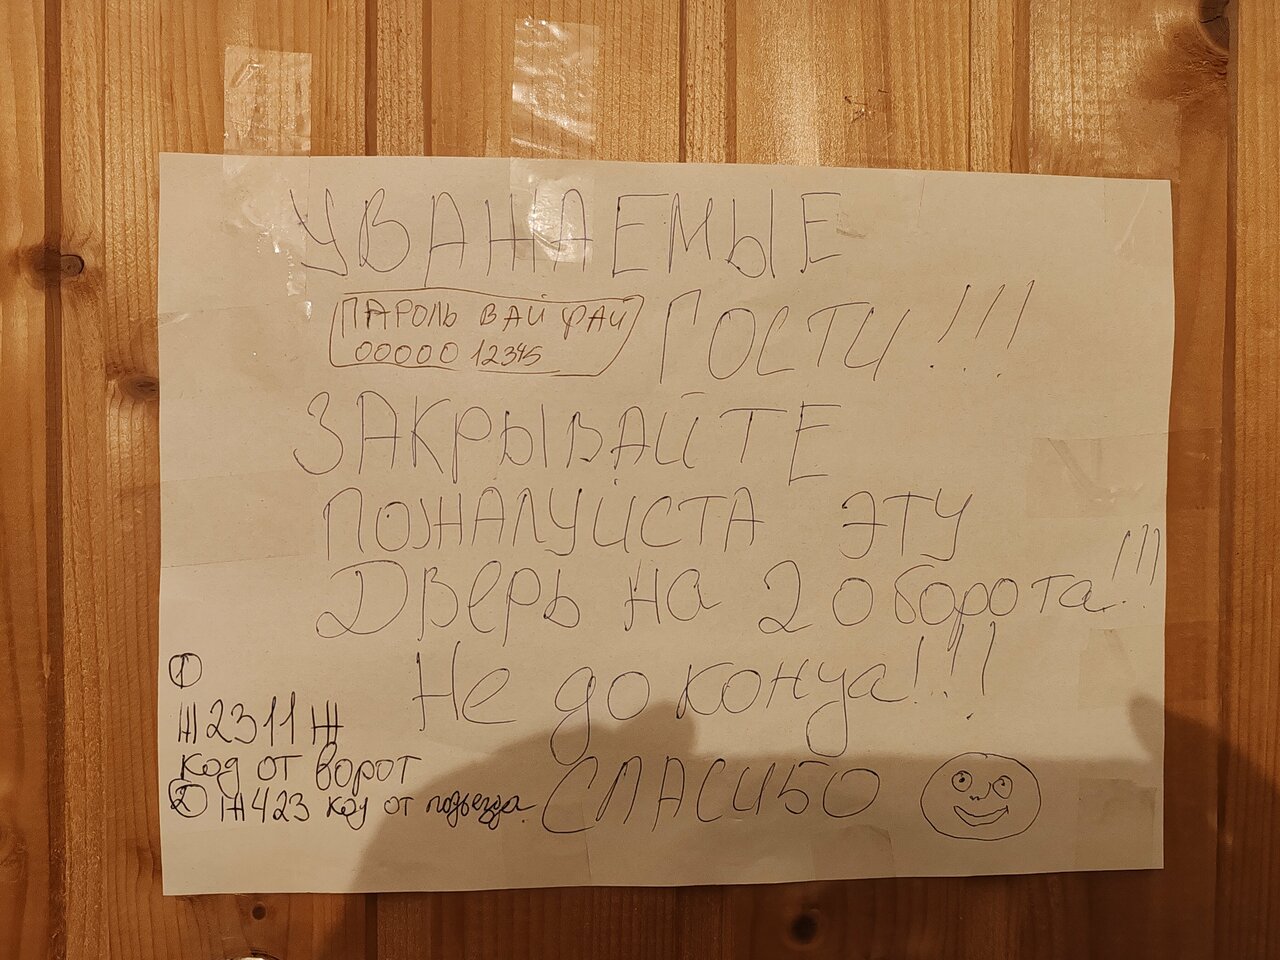 УВАЖАЕМЫЕ
ГОСТИ!!!
ПАРОЛЬ ВАЙ ФАЙ
0000012345
ЗАКРЫВАЙТЕ
ПОЖАЛУЙСТА ЭТУ
Дверь на 2 оборота!!!
Не до конца!!!
СПАСИБО
1
#2311#
код от ворот
2 #423 код от подъезда.